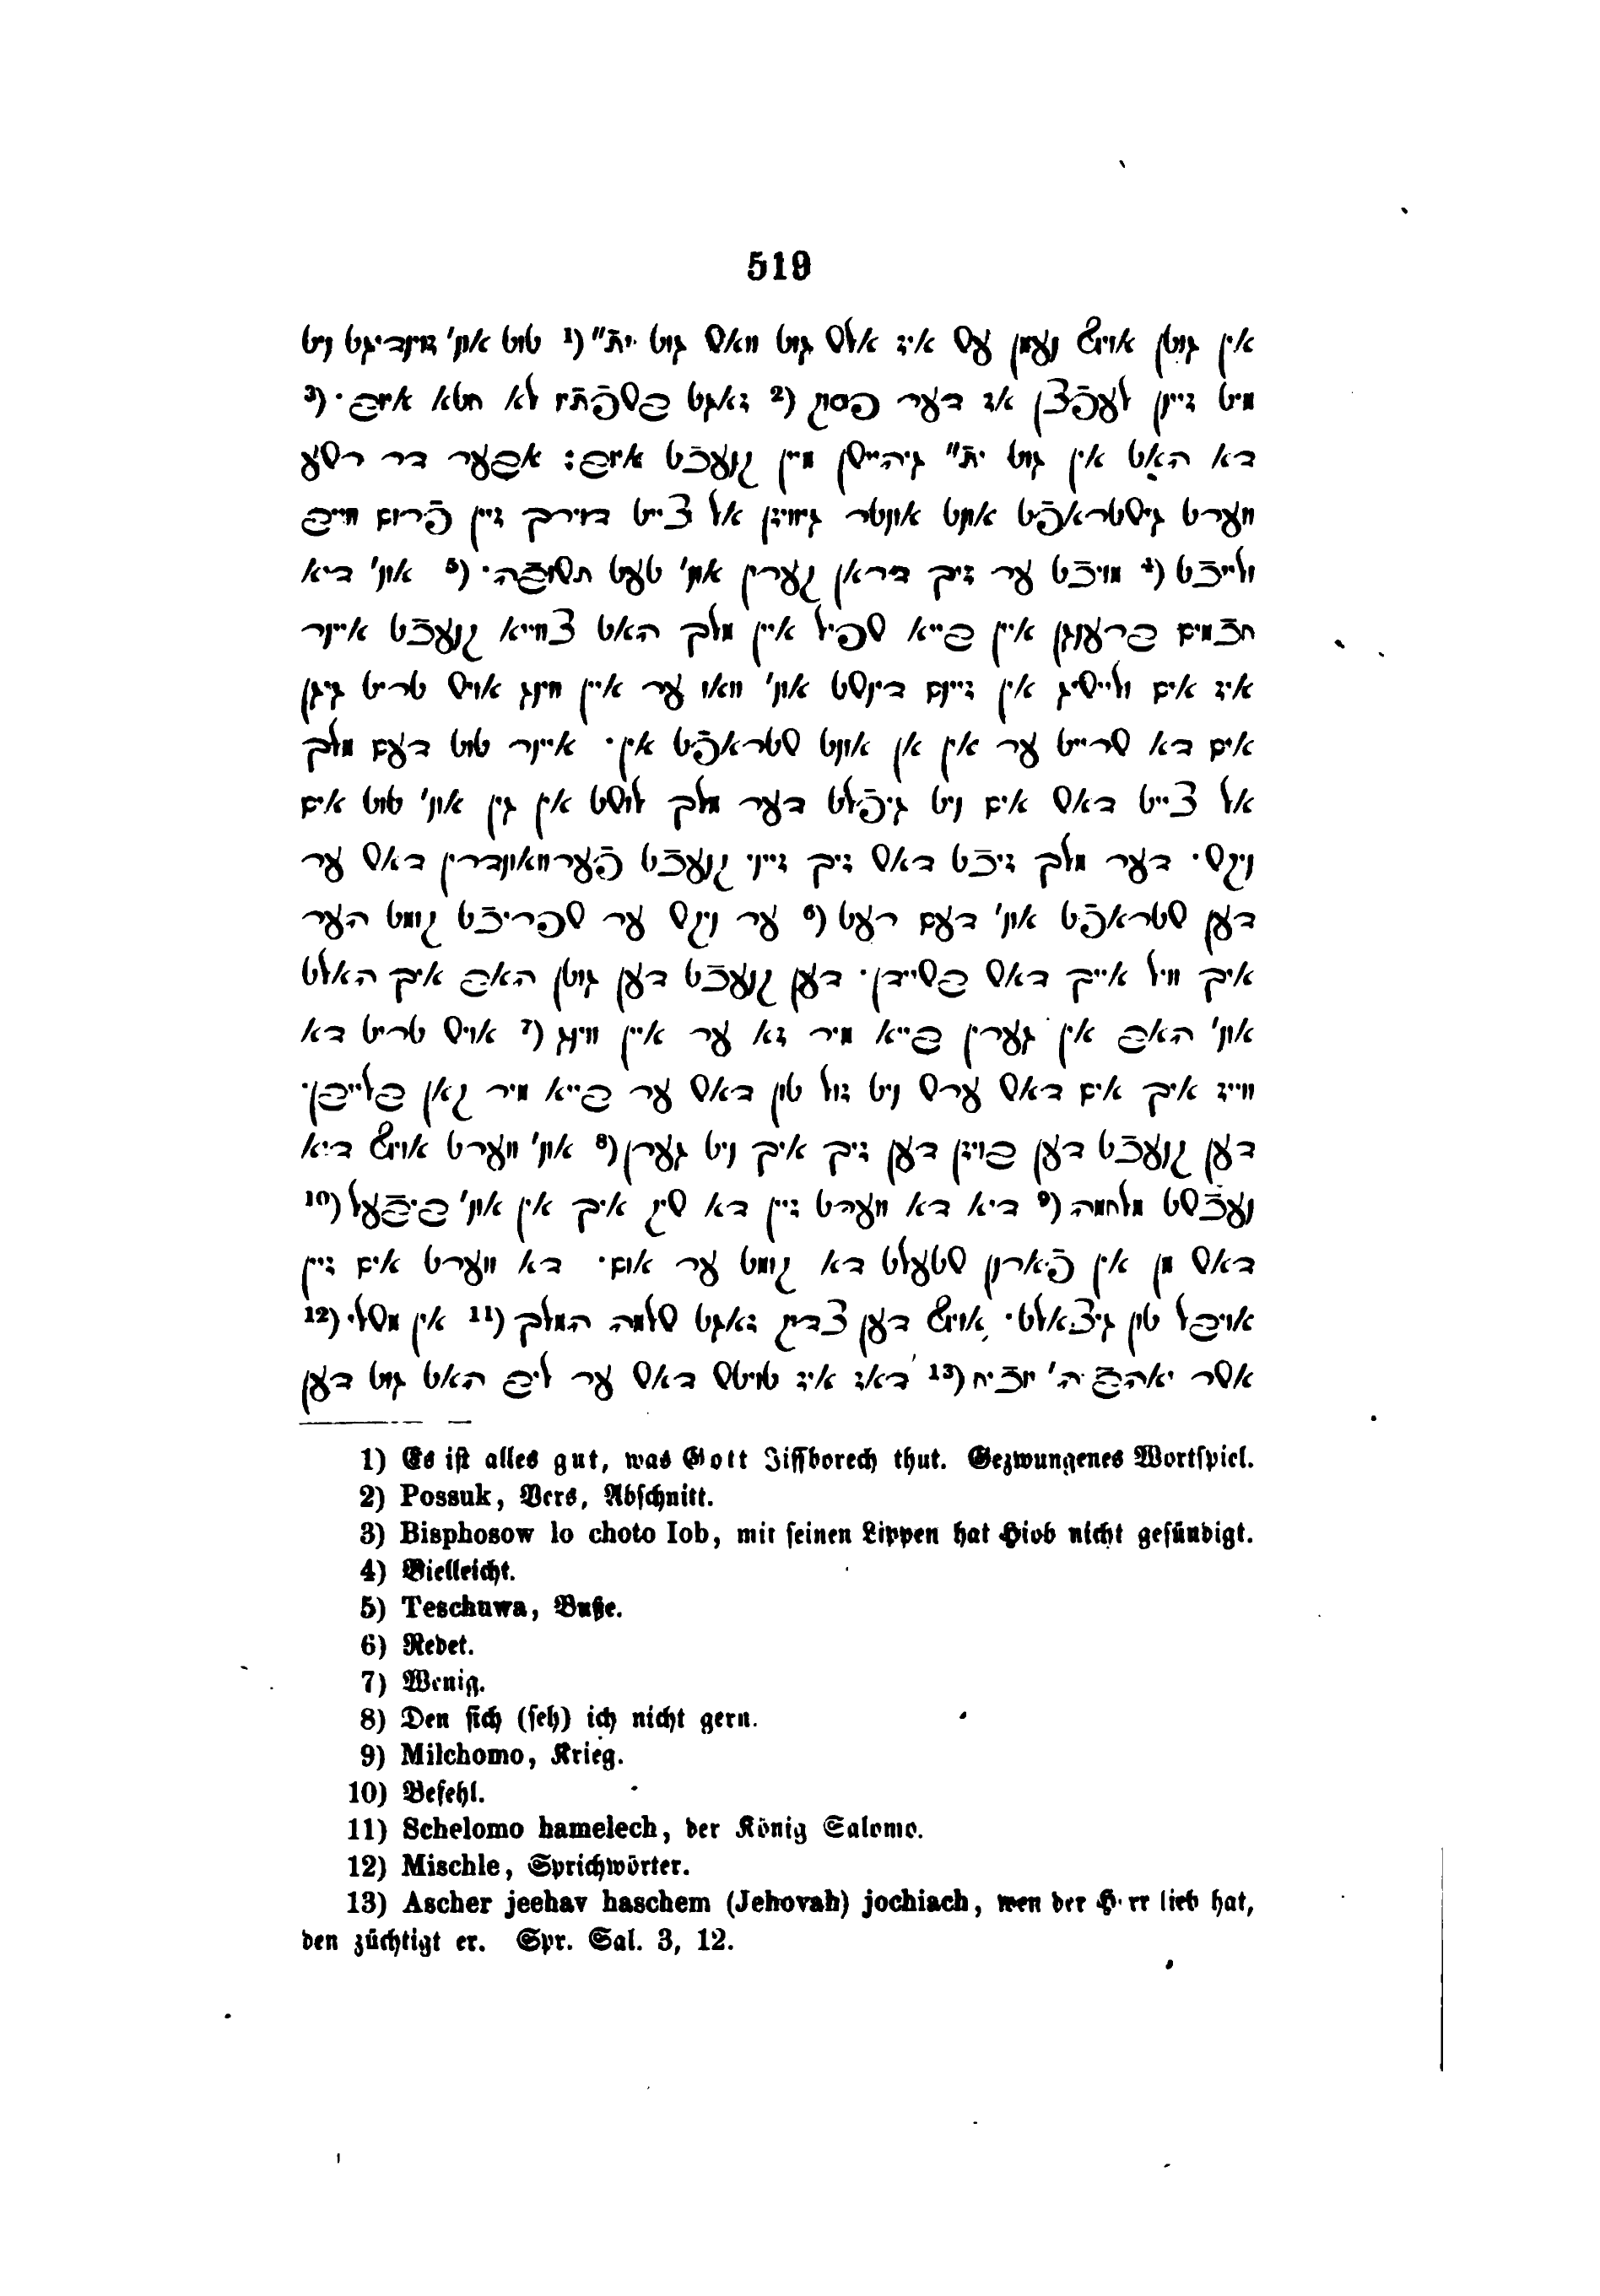 519
אין גוטן אויף נעמן עס איז אלס גוט וואס גוט ית״ (¹ טוט אונ' זינדיגט ניט
מיט זיינן לעפֿצן אז דער פסוק (² זאגט בשפֿתיו לא חטא איוב· (³
דא האט אין גוט ית״ גיהייסן מיין קנעכֿט איוב: אבער דר רשע
ווערט גישטראפֿט אונט אונטר גוויזן אל צייט דוירך זיין פֿרום ווייב
ולייכֿט (⁴ מויכֿט ער זיך דיראן קערין אונ' טעט תשובֿה· (⁵ אונ' דיא
חכֿמים ברענגן איין בייא שפיל איין מלך האט צווייא קנעכֿט איינר
איז אים ולייסיג אין זיינם דינסט אונ' וואו ער איין ווינג אויס טריט גיגן
אים דא שרייט ער אין אן אונט שטראפֿט אין· איינר טוט דעם מלך
אל צייט דאס אים ניט גיפֿלט דער מלך לוסט אין גין אונ' טוט אים
ניקס· דער מלך זיכֿט דאס זיך זייני קנעכֿט פֿערוואונדרין דאס ער
דען שטראפֿט אונ' דעם רעט (⁶ ער ניקס ער שפריכֿט קומט הער
איך וויל אייך דאס בשיידן· דען קנעכֿט דען גוטן האב איך האלט
אונ' האב אין גערין בייא מיר זא ער איין ווינג (⁷ אויס טריט דא
ווייז איך אים דאס ערס ניט זול טון דאס ער בייא מיר קאן בלייבן·
דען קנעכֿט דען בויזן דען זיך איך ניט גערן (⁸ אונ' ווערט אויף דיא
נעכֿסט מלחמה (⁹ דיא דא ווערט זיין דא שיק איך אין אונ' ביפֿעל (¹⁰
דאס מן אין פֿארן שטעלט דא קומט ער אום· דא ווערט אים זיין
אויבל טון גיצאלט· אויף דען צדיק זאגט שלמה המלך (¹¹ אין משלי (¹²
אשר יאהבֿ ה' יוכֿיח (¹³ דאז איז טויטש דאס ער ליב האט גוט דען
1) Es ist alles gut, was Gott Jissborech thut. Gezwungenes Wortspiel.
2) Possuk, Vers, Abschnitt.
3) Bisphosow lo choto Iob, mit seinen Lippen hat Hiob nicht gesündigt.
4) Vielleicht.
5) Teschuwa, Buße.
6) Redet.
7) Wenig.
8) Den sich (seh) ich nicht gern.
9) Milchomo, Krieg.
10) Befehl.
11) Schelomo hamelech, der König Salomo.
12) Mischle, Sprichwörter.
13) Ascher jeehav haschem (Jehovah) jochiach, wen der Herr lieb hat,
den züchtigt er. Spr. Sal. 3, 12.